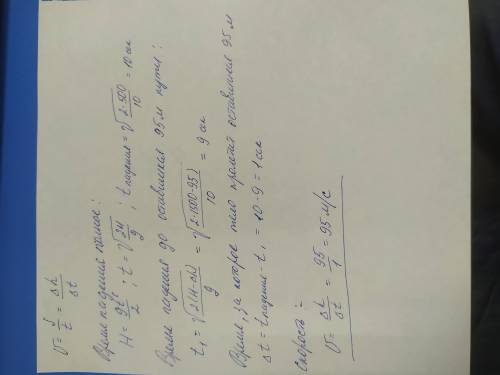 υ = S/t = Δh/Δt
Время падения полное:
H = gt²/2 ; t = √(2H/g) ; tпадения = √(2·500/10) = 10 сек
Время падения до оставшихся 95 м пути:
t₁ = √(2(H-Δh)/g) = √(2·(500-95)/10) = 9 сек
Время, за которое тело пролетит оставшиеся 95 м
Δt = tпадения - t₁ = 10 - 9 = 1 сек
Скорость:
υ = Δh/Δt = 95/1 = 95 м/с